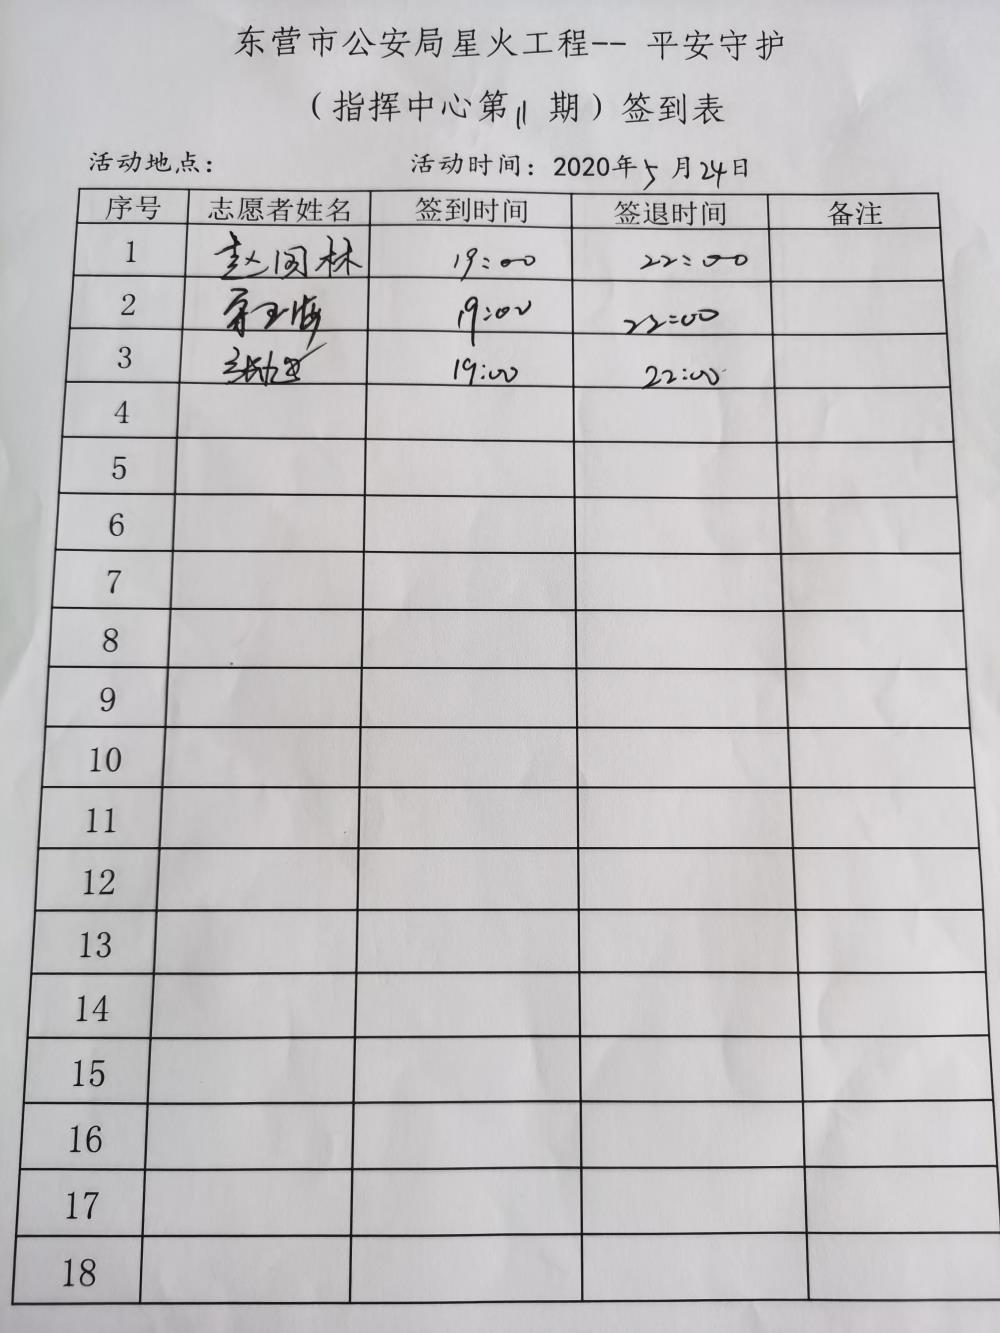 东营市公安局星火工程-- 平安守护
（指挥中心第11 期）签到表
活动地点： 活动时间：2020年5月24日
序号 志愿者姓名 签到时间 签退时间 备注
1 赵国林 19:00 22:00
2 19:00 22:00
3 19:00 22:00
4
5
6
7
8
9
10
11
12
13
14
15
16
17
18